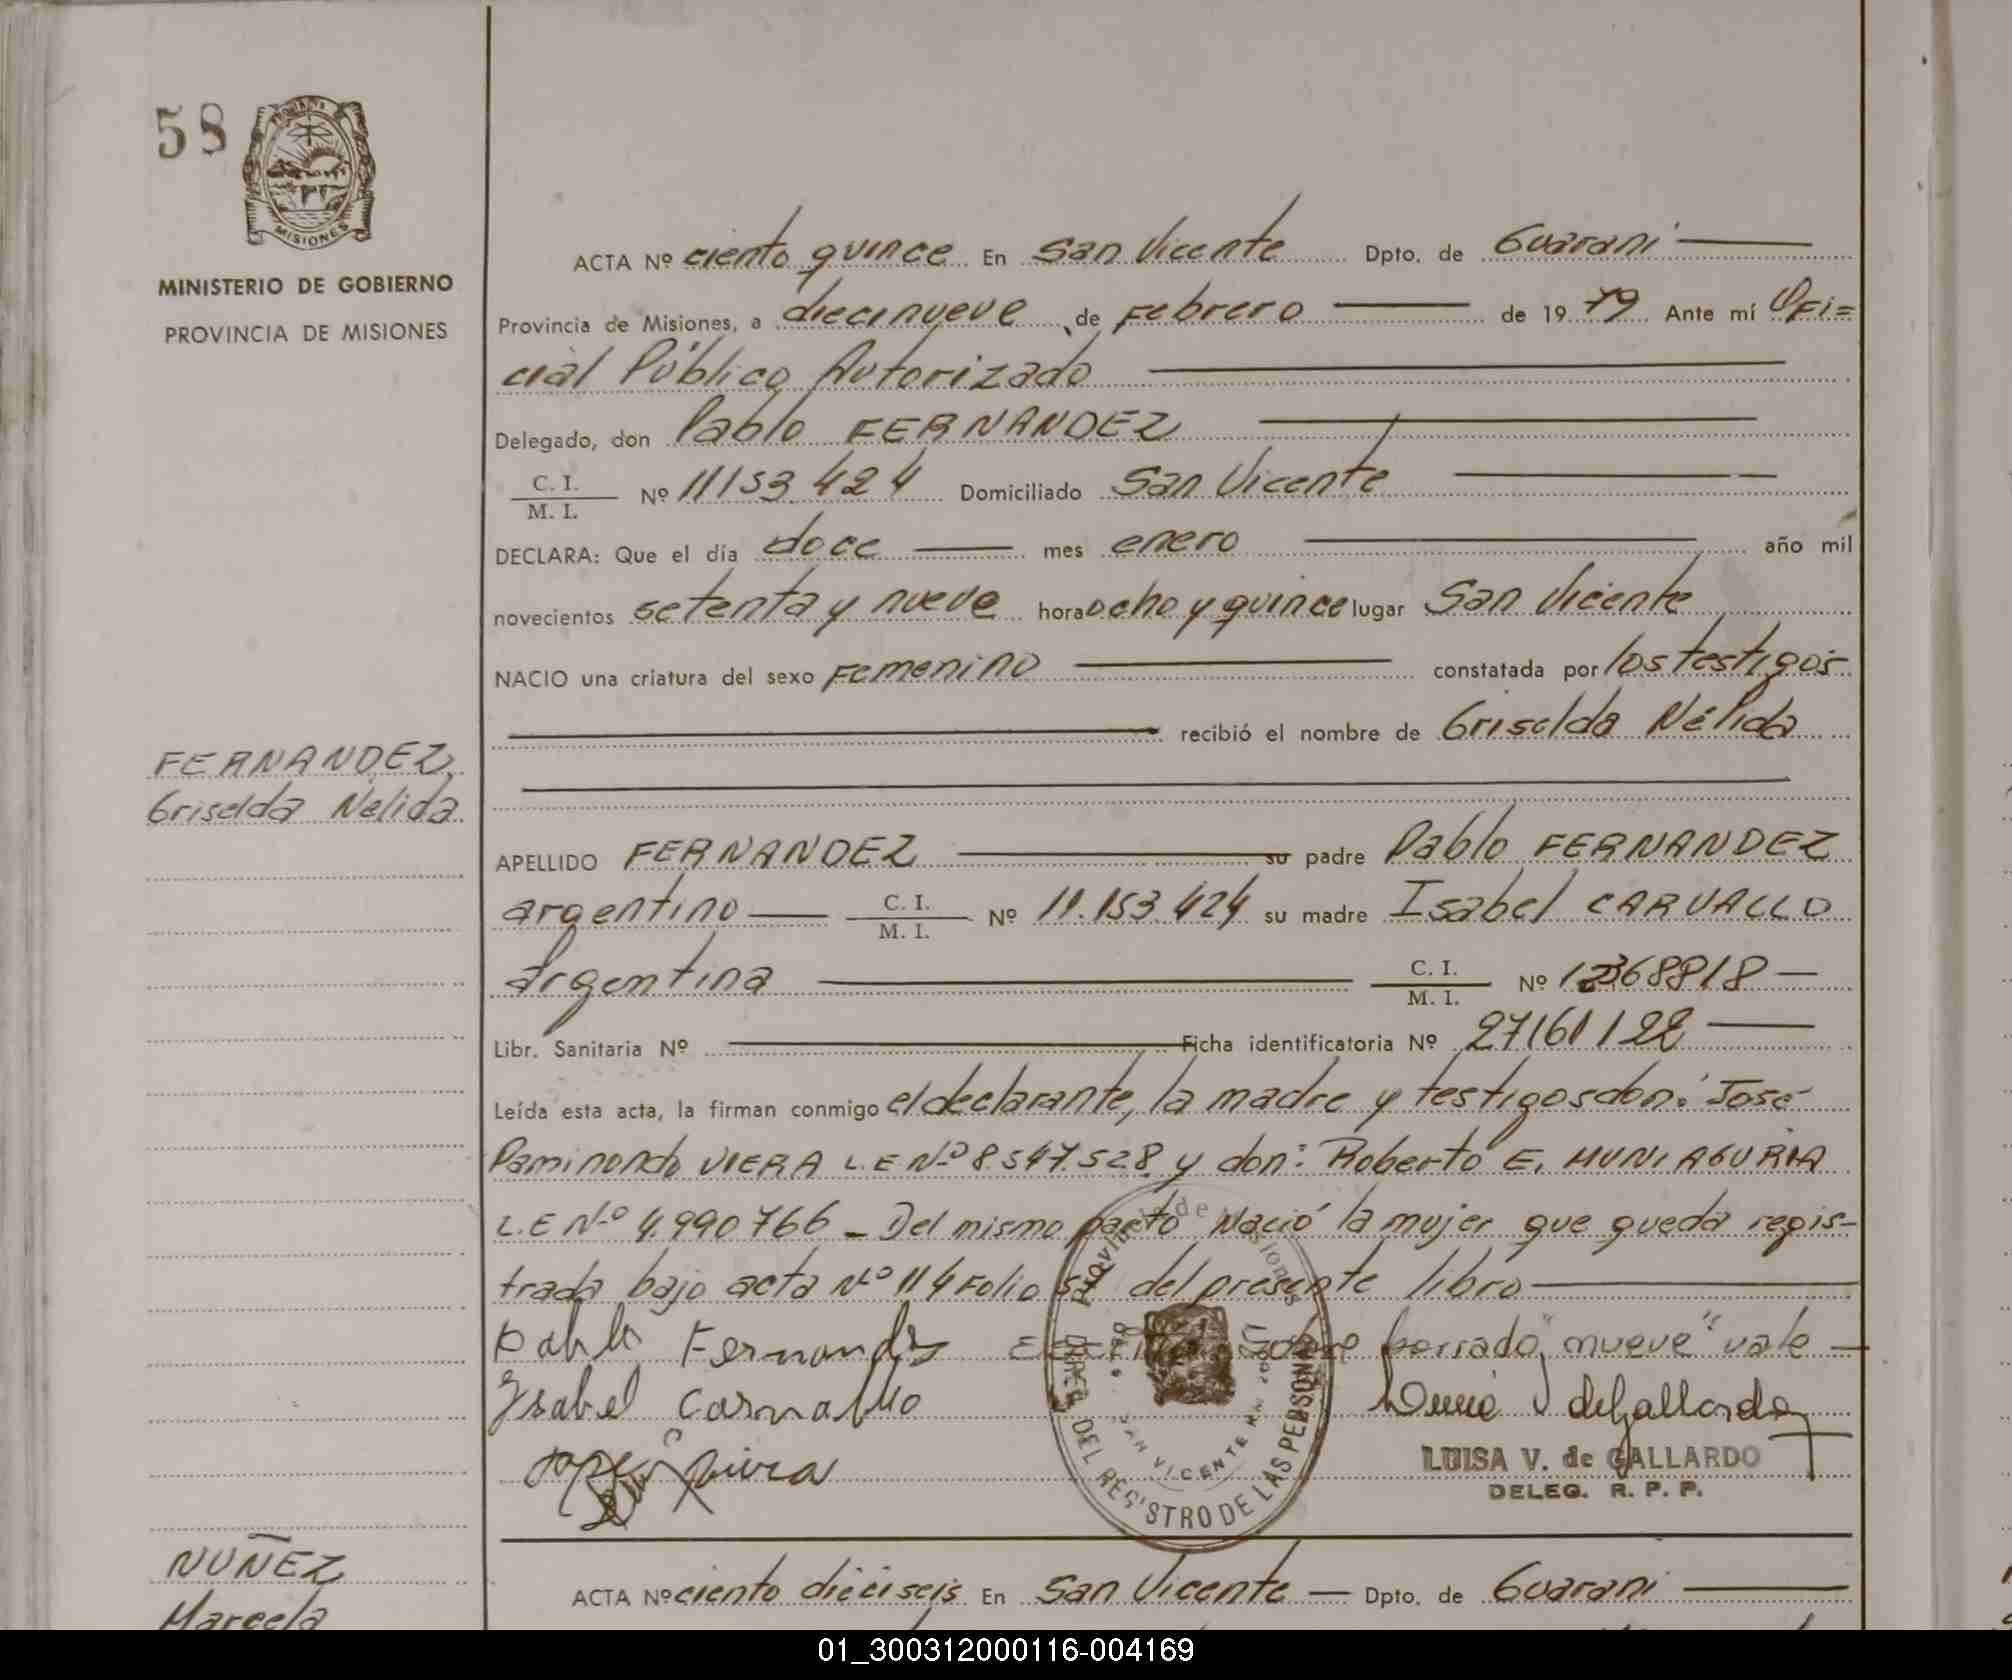 58
MISIONES
MINISTERIO DE GOBIERNO
PROVINCIA DE MISIONES
ACTA Nº ciento quince En San Vicente Dpto. de Guarani
Provincia de Misiones, a diecinueve de Febrero de 19 79 Ante mí Ofi=
cial Público Autorizado
Delegado, don Pablo FERNANDEZ
C. I.
M. I. Nº 11153.424 Domiciliado San Vicente
DECLARA: Que el día doce mes enero año mil
novecientos setenta y nueve hora ocho y quince lugar San Vicente
NACIO una criatura del sexo Femenino constatada por los testigos
recibió el nombre de Griselda Nélida
FERNANDEZ,
Griselda Nélida
APELLIDO FERNANDEZ su padre Pablo FERNANDEZ
argentino C. I. M. I. Nº 11.153.424 su madre Isabel CARVALLO
argentina C. I. M. I. Nº 12368818
Libr. Sanitaria Nº Ficha identificatoria Nº 27161122
Leída esta acta, la firman conmigo el declarante, la madre y testigos don: José
Paminondo VIERA L.E Nº 8.547.528. y don: Roberto E. MUNIAGURIA
L.E Nº 4.990766 - Del mismo parto Nació la mujer que queda regis-
trada bajo acta Nº 114 Folio del presente libro
Pablo Fernandes sobre borrado "nueve" vale
Isabel Carvallo deGallardo
LUISA V. de GALLARDO
DELEG. R. P. P.
Provincia de Misiones
DEL REGISTRO DE LAS PERSONAS
SAN VICENTE
NUÑEZ
Marcela
ACTA Nº ciento dieciseis En San Vicente Dpto. de Guarani
01_300312000116-004169